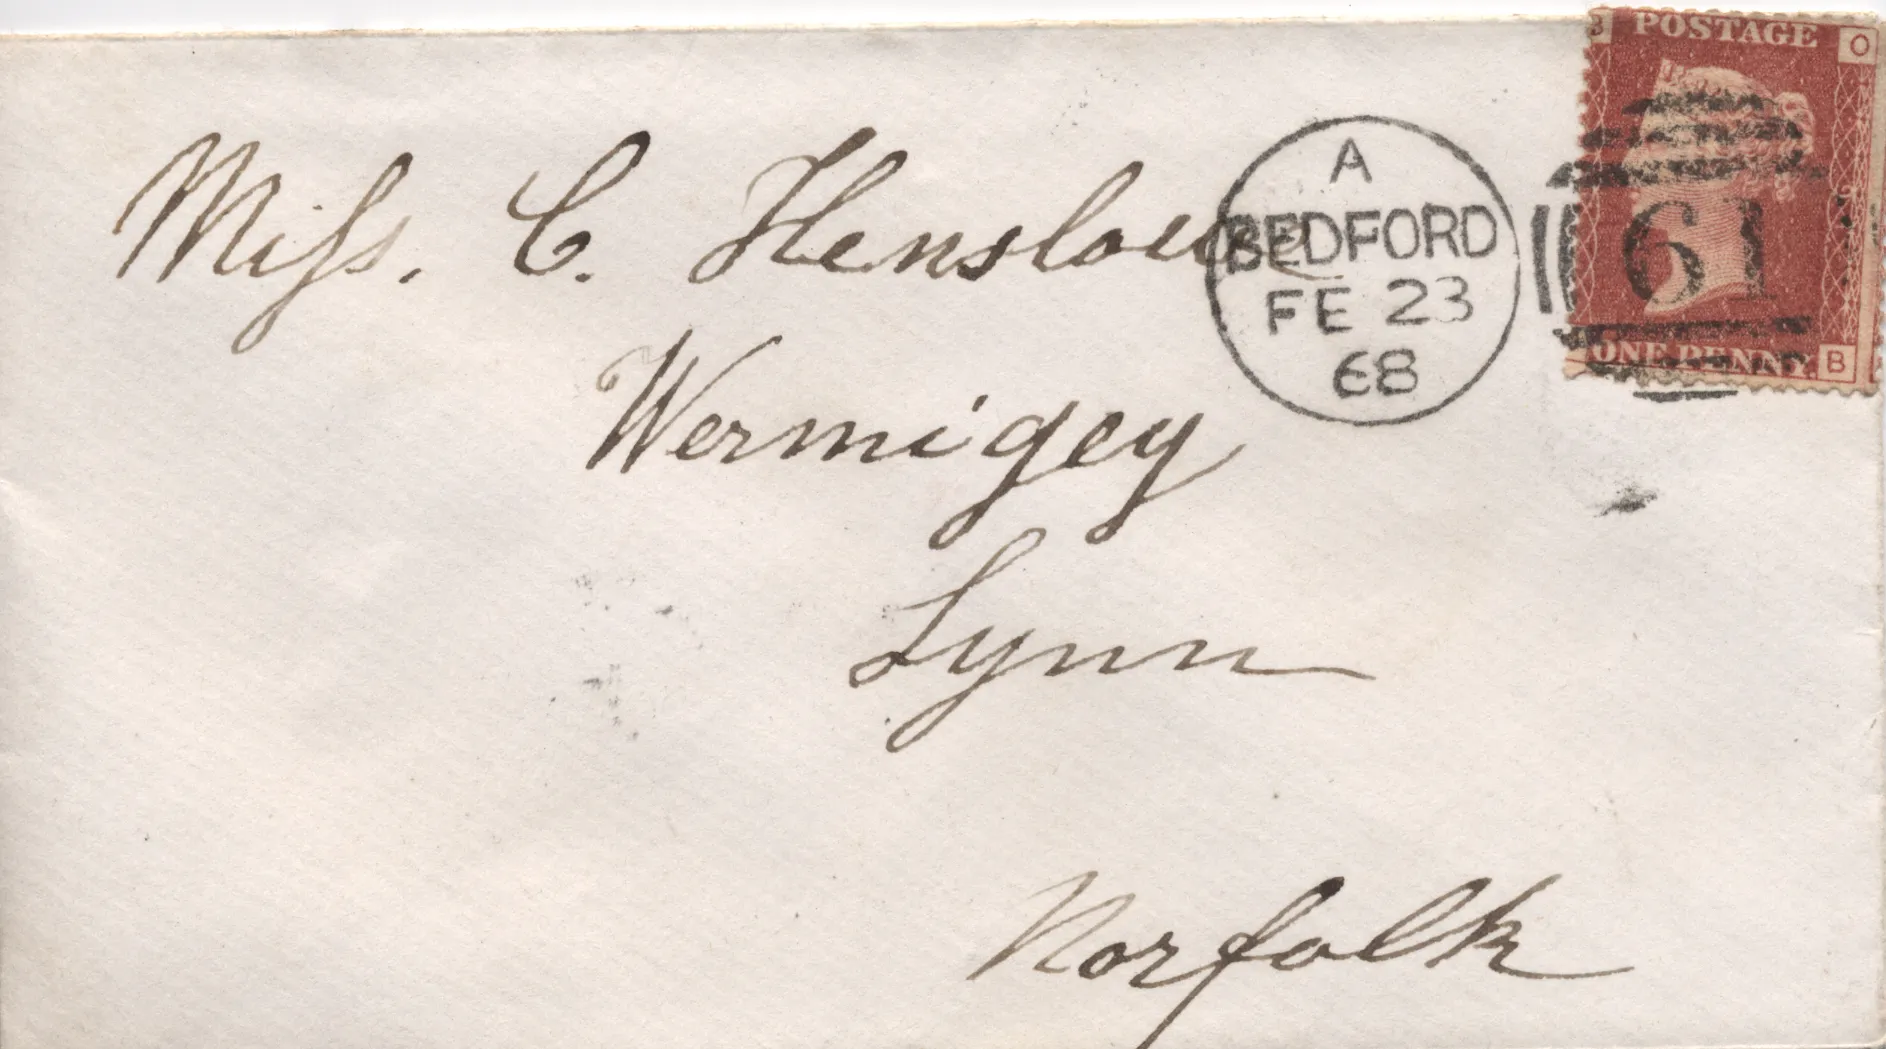 Miss. C. Henslowe
Wermigey
Lynn
Norfolk
A
BEDFORD
FE 23
68
61
POSTAGE
O
ONE PENNY
B